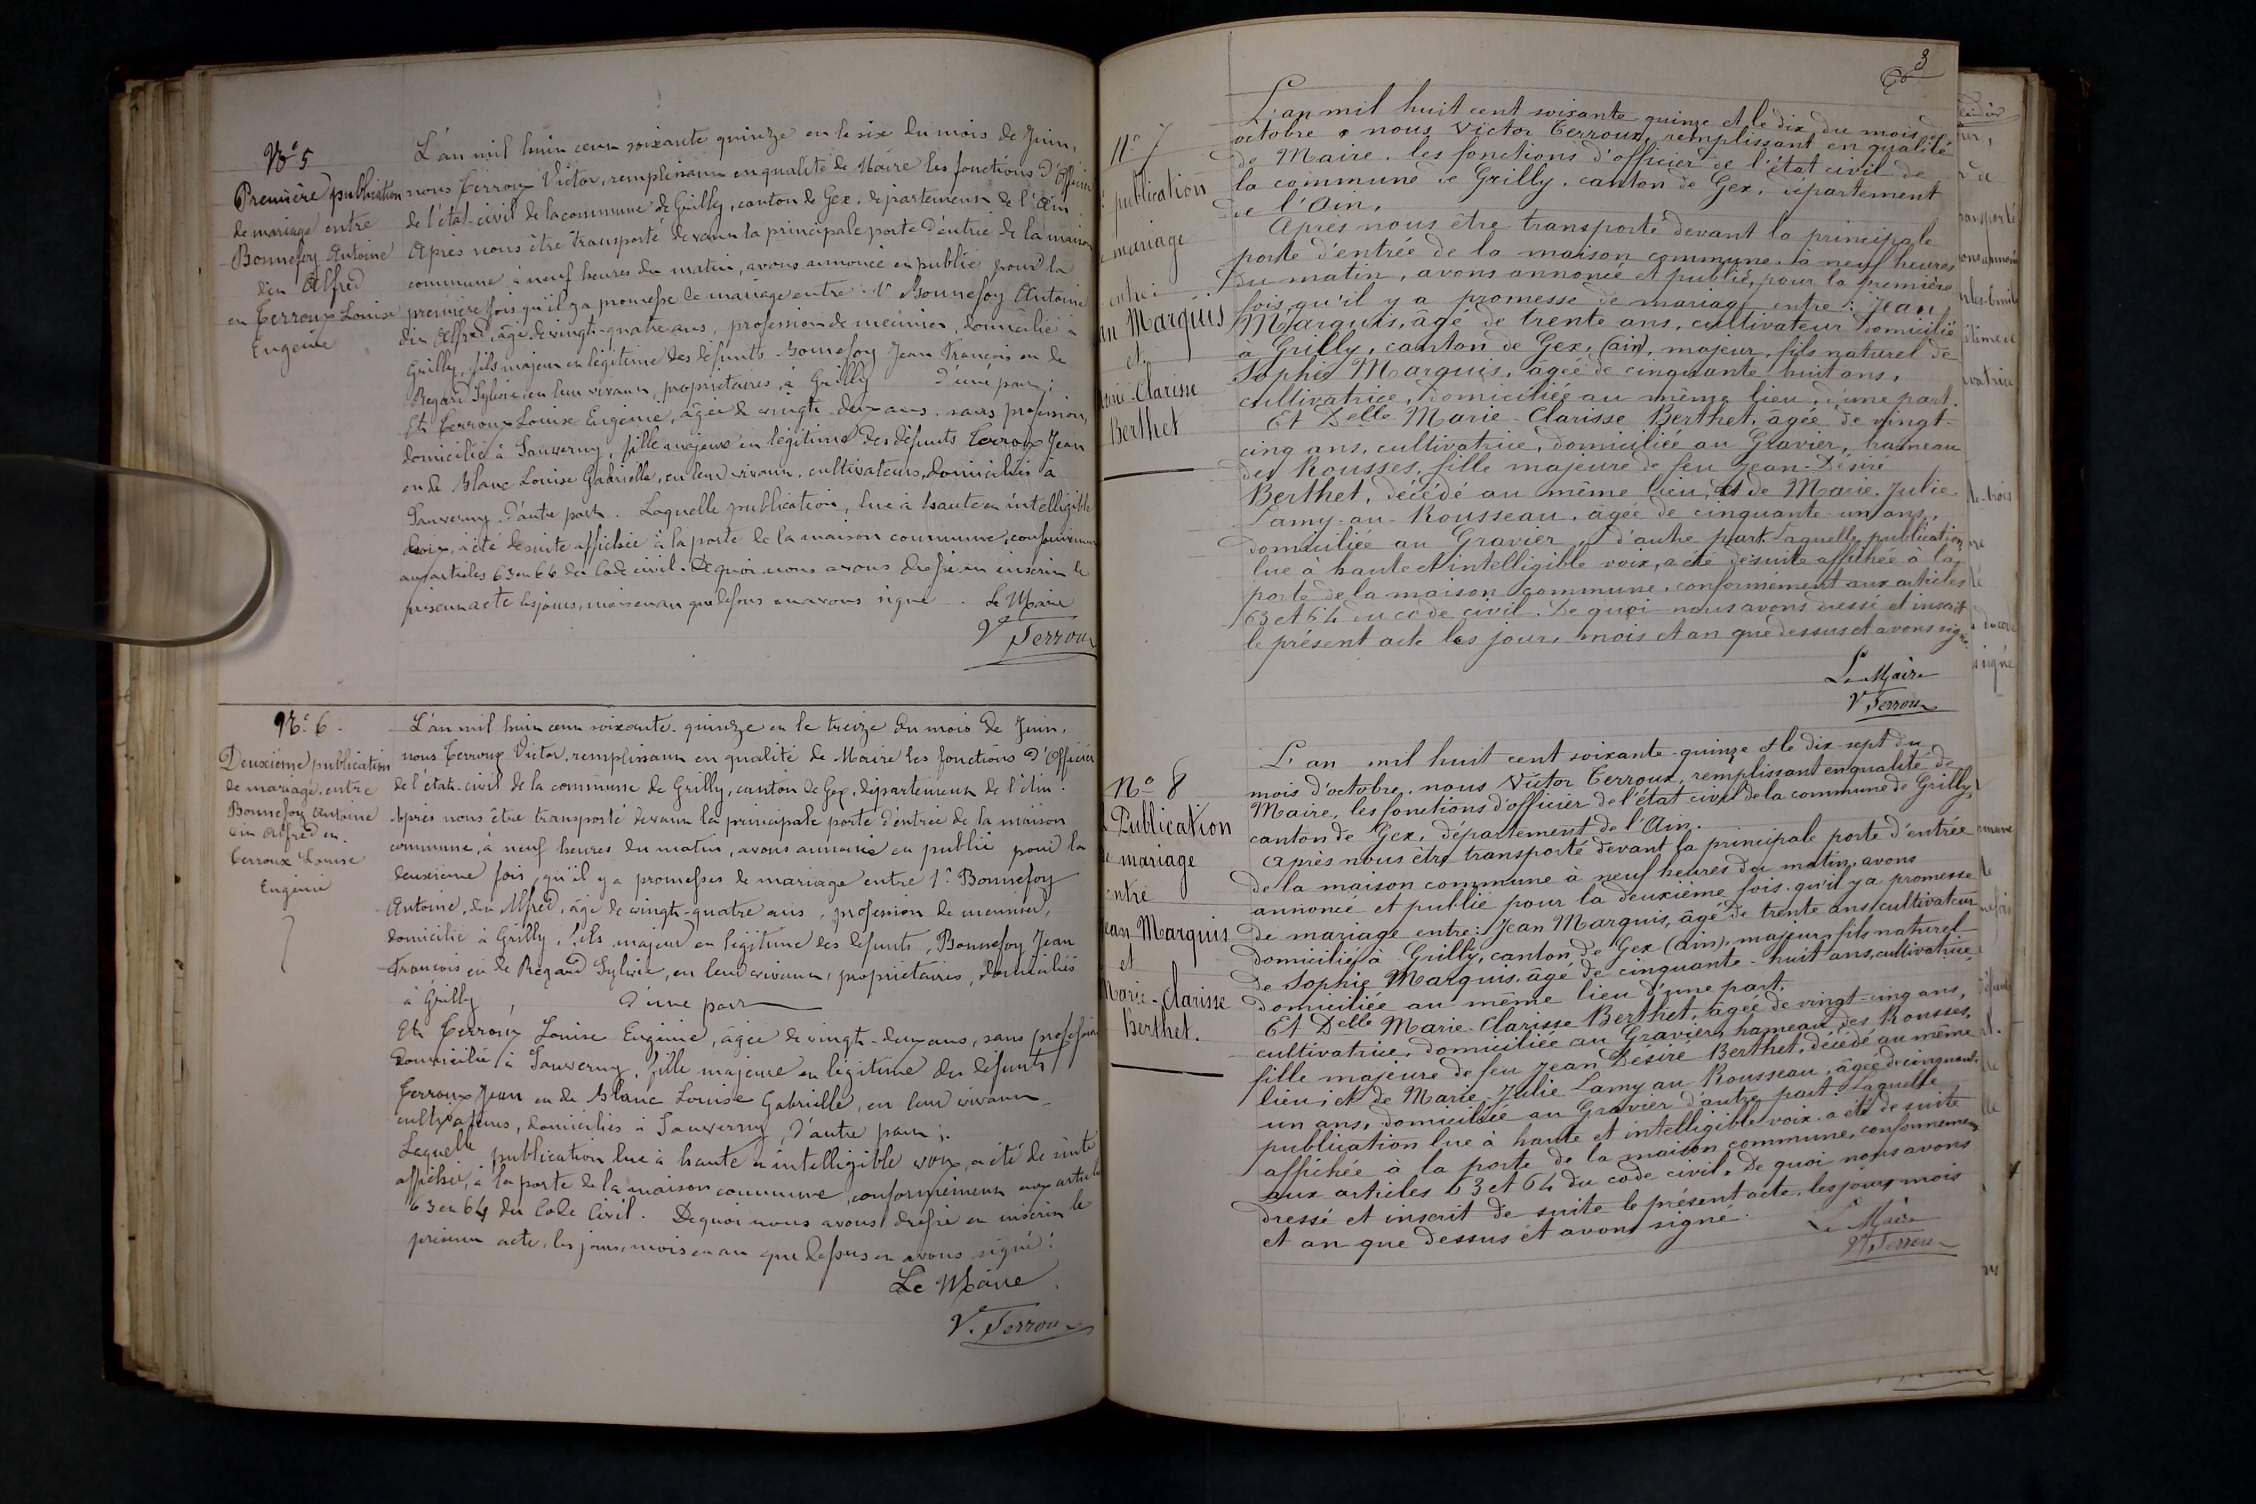 No 5
Première publication
de mariage entre
Bonnefoy Antoine
din Alfred
en Terroux Louise
Eugénie
L'an mil huit cent soixante quinze en le six du mois de Juin,
nous Terroux Victor, remplissant en qualité de Maire les fonctions d'Officier
de l'état-civil de la commune de Grilly, canton de Gex, département de l'Ain.
Après nous être transporté devant la principale porte d'entrée de la maison
commune à neuf heures du matin, avons annoncé en publié pour la
première fois qu'il y a promesse de mariage entre 1° Bonnefoy Antoine
din Alfred, âgé de vingt-quatre ans, profession de meunier, domicilié à
Grilly, fils majeur en légitime des défunts Bonnefoy Jean François en de
Regard Sylvie en leur vivant, propriétaires, à Grilly d'une part;
Et Terroux Louise Eugénie, âgée de vingt-deux ans, sans profession,
domicilié à Sauverny, fille majeure en légitime des défunts Terroux Jean
en de Blanc Louise Gabrielle, en leur vivant, cultivateurs, domiciliés à
Sauverny d'autre part. Laquelle publication, lue à haute en intelligible
voix, a été de suite affichée à la porte de la maison commune, conformément
aux articles 63 en 64 du Code civil. De quoi nous avons dressé en inscrit le
présent acte les jours, mois en an que dessus en avons signé. Le Maire
V. Terroux
No 6.
Deuxième publication
de mariage entre
Bonnefoy Antoine
din Alfred en
Terroux Louise
Eugénie
L'an mil huit cent soixante-quinze en le treize du mois de Juin,
nous Terroux Victor, remplissant en qualité de Maire les fonctions d'Officier
de l'état-civil de la commune de Grilly, canton de Gex, département de l'Ain.
Après nous être transporté devant la principale porte d'entrée de la maison
commune, à neuf heures du matin, avons annoncé en publié pour la
deuxième fois, qu'il y a promesses de mariage entre 1° Bonnefoy
Antoine, din Alfred, âgé de vingt-quatre ans, profession de meunier,
domicilié à Grilly, fils majeur en légitime des défunts, Bonnefoy Jean
François en de Regard Sylvie, en leur vivant, propriétaires, domiciliés
à Grilly, d'une part
Et Terroux Louise Eugénie, âgée de vingt-deux ans, sans profession
domiciliée à Sauverny, fille majeure en légitime des défunts
Terroux Jean en de Blanc Louise Gabrielle, en leur vivant
cultivateurs, domiciliés à Sauverny, d'autre part;
Laquelle publication lue à haute en intelligible voix, a été de suite
affichée, à la porte de la maison commune, conformément aux articles
63 en 64 du Code Civil. De quoi nous avons dressé en inscrit le
présent acte, les jours, mois en an que dessus en avons signé.
Le Maire
V. Terroux
3
No 7
publication
mariage
entre:
an Marquis
et
arie-Clarisse
Berthet
L'an mil huit cent soixante quinze et le dix du mois de
octobre, nous Victor Terroux, remplissant en qualité
de Maire, les fonctions d'officier de l'état civil de
la commune de Grilly, canton de Gex, département
de l'Ain,
Après nous être transporté devant la principale
porte d'entrée de la maison commune, à neuf heures
du matin, avons annoncé et publié, pour la première
fois qu'il y a promesse de mariage entre: Jean
Marquis, âgé de trente ans, cultivateur domicilié
à Grilly, canton de Gex, (ain), majeur, fils naturel de
Sophie Marquis, âgée de cinquante-huit ans,
cultivatrice, domiciliée au même lieu, d'une part.
Et Delle Marie-Clarisse Berthet, âgée de vingt-
cinq ans, cultivatrice, domiciliée au Gravier, hameau
des Rousses, fille majeure de feu Jean-Désiré
Berthet, décédé au même lieu, et de Marie-Julie
Lamy-au-Rousseau, âgée de cinquante-un ans,
domiciliée au Gravier, d'autre part. Laquelle publication
lue à haute et intelligible voix, a été desuite affichée à la
porte de la maison commune, conformément aux articles
63 et 64 du code civil. De quoi nous avons dressé et inscrit
le présent acte les jour, mois et an que dessus et avons signé.
Le Maire
V. Terroux
No 8
Publication
de mariage
entre
Jean Marquis
et
Marie-Clarisse
Berthet.
L'an mil huit cent soixante-quinze et le dix-sept du
mois d'octobre, nous Victor Terroux, remplissant en qualité de
Maire, les fonctions d'officier de l'état civil de la commune de Grilly,
canton de Gex, département de l'Ain.
Après nous être transporté devant la principale porte d'entrée
de la maison commune à neuf heures du matin, avons
annoncé et publié pour la deuxième fois, qu'il y a promesse
de mariage entre: Jean Marquis, âgé de trente ans, cultivateur
domicilié à Grilly, canton de Gex (ain), majeur, fils naturel
de Sophie Marquis, âgé de cinquante-huit ans, cultivatrice,
domiciliée au même lieu d'une part.
Et Delle Marie-Clarisse Berthet, âgée de vingt-cinq ans,
cultivatrice, domiciliée au Gravier, hameau des Rousses,
fille majeure de feu Jean Désiré Berthet, décédé au même
lieu; et de Marie-Julie Lamy au Rousseau, âgée de cinquante-
un ans, domiciliée au Gravier d'autre part. Laquelle
publication lue à haute et intelligible voix a été de suite
affichée à la porte de la maison commune, conformément
aux articles 63 et 64 du code civil. De quoi nous avons
dressé et inscrit de suite le présent acte, les jours mois
et an que dessus et avons signé.
Le Maire
V. Terroux